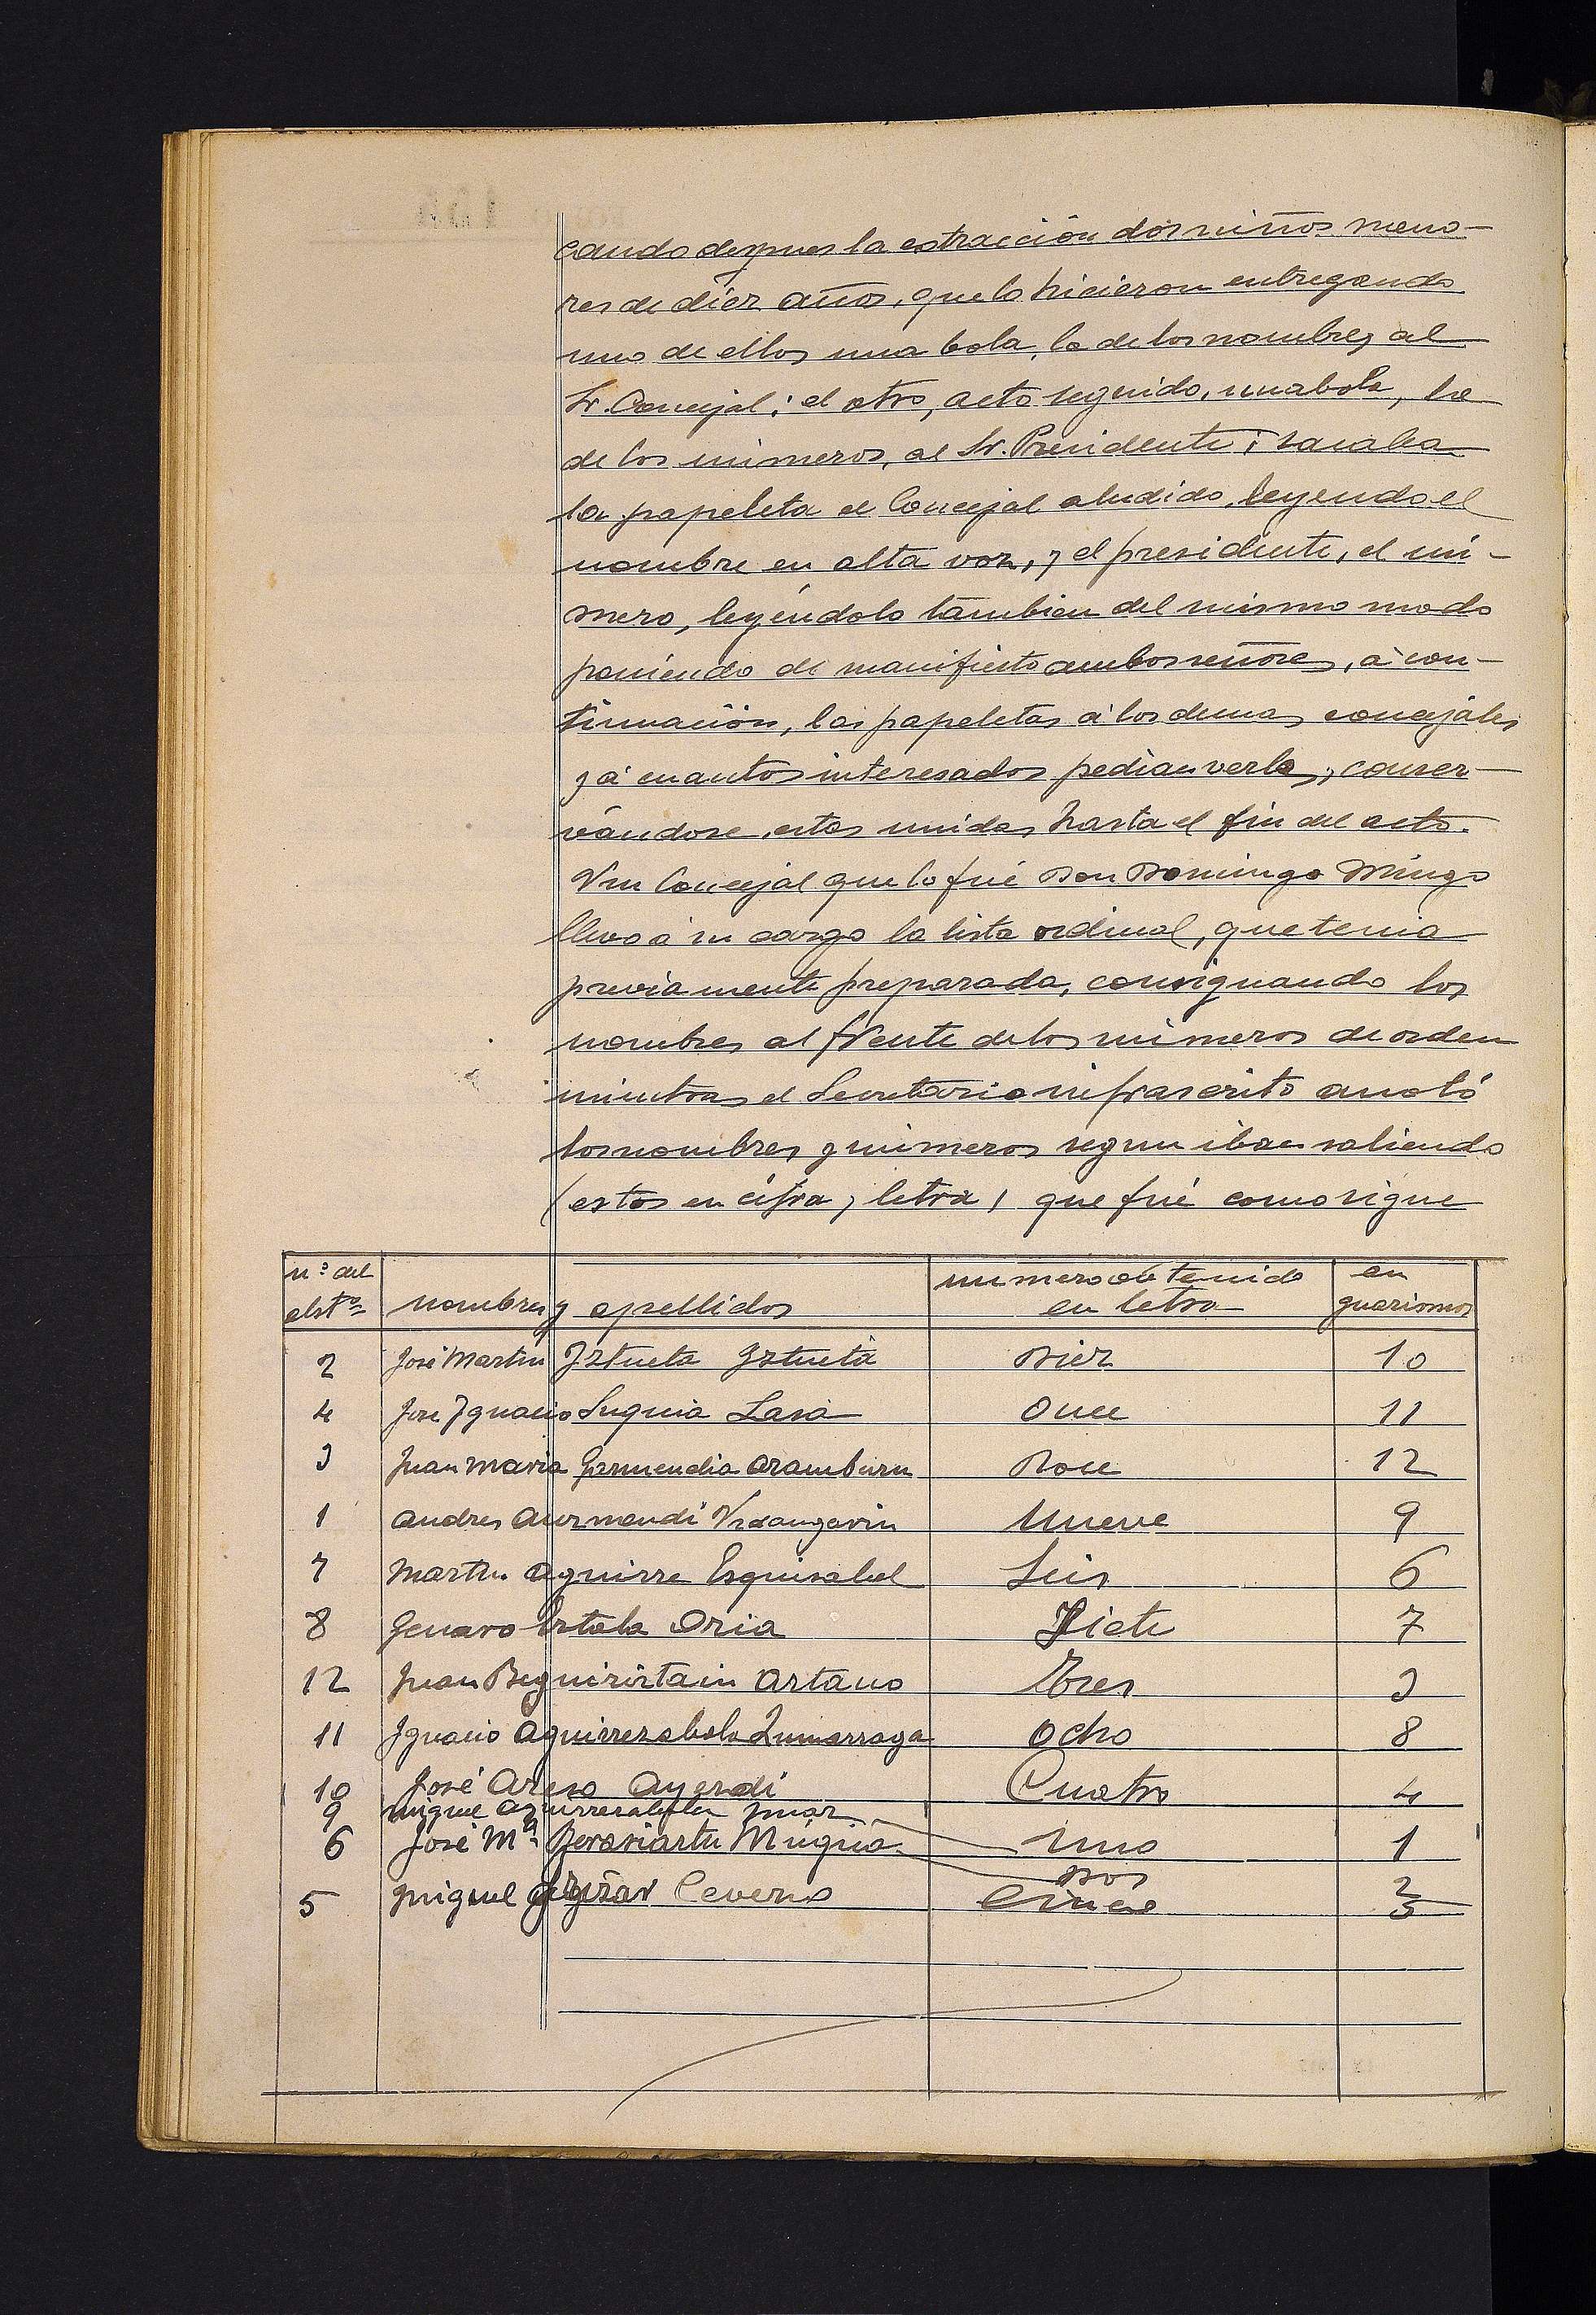 cando despues la extracción dos niños meno-
res de diez años, que lo hicieron entregando
uno de ellos una bola, la de los nombres al
Sr. Concejal; el otro, acto seguido, una bola, la
de los números, al Sr. Presidente; sacaba
la papeleta el Concejal aludido, leyendo el
nombre en alta voz, y el presidente, el nú-
mero, leyéndolo tambien del mismo modo
poniendo de manifiesto ambos señores, á con-
tinuación, las papeletas á los demas concejales
y á cuantos interesados pedian verlas, conser-
vándose estas unidas hasta el fin del acto.
Un Concejal que lo fué Don Domingo Múngo
llevo á su cargo la lista ordinal, que tenia
previamente preparada, consignando los
nombres al frente de los números de orden
mientras el Secretario infrascrito anotó
los nombres y números segun iban saliendo
(estos en cifra y letra) que fué como sigue
n.º del alist.º nombres y apellidos numero obtenido en letra en guarismos
2 José Martin Iztueta Iztueta Diez 10
4 José Ignacio Suquia Lasa Once 11
3 Juan Maria Garmendia Aramburu Doce 12
1 Andres Aurmendi Urdangarin Nueve 9
7 Martin Aguirre Esquisabel Seis 6
8 Genaro Oria Siete 7
12 Juan Beguiristain Artano Tres 3
11 Ignacio Aguirrezabala Zumarraga Ocho 8
10 José Areso Ayerdi Cuatro 4
9 Miguel Aguirrezabala Uno 1
6 José Mª Beraziartu Múgica Dos 2
5 Miguel Cinco 5